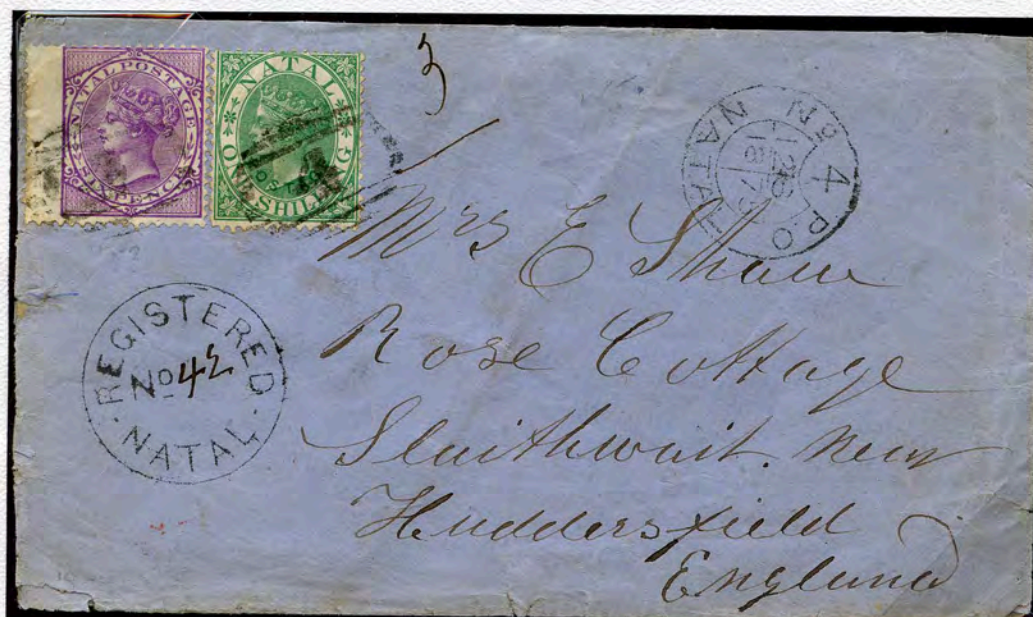 NATAL POSTAGE
SIXPENCE
NATAL
POSTAGE
ONE SHILLING
3
No 4 P.O.
NATAL
REGISTERED
No 42
NATAL
Mrs E Shaw
Rose Cottage
Slaithwait. Near
Huddersfield
England